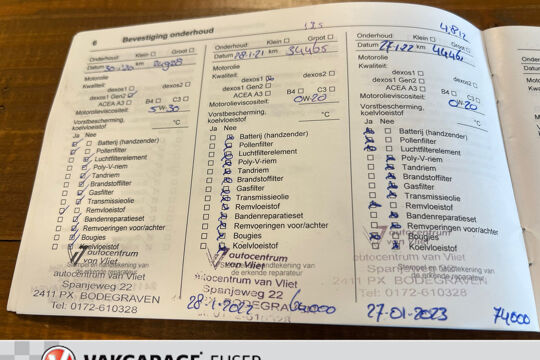 6 Bevestiging onderhoud
Onderhoud: Klein Groot
Datum km
Motorolie
Kwaliteit:
dexos1 dexos2
dexos1 Gen2
ACEA A3 B4 C3
Motorolieviscositeit:
5W-30
Vorstbescherming,
koelvloeistof °C
Ja Nee
Batterij (handzender)
Pollenfilter
Luchtfilterelement
Poly-V-riem
Tandriem
Brandstoffilter
Gasfilter
Transmissieolie
Remvloeistof
Bandenreparatieset
Remvoeringen voor/achter
Bougies
Koelvloeistof
autocentrum
van Vliet
autocentrum van Vliet
Spanjeweg 22
2411 PX BODEGRAVEN
Tel: 0172-610328
Onderhoud: Klein Groot
Datum 28-1-21 km 34465
Motorolie
Kwaliteit:
dexos1 dexos2
dexos1 Gen2
ACEA A3 B4 C3
Motorolieviscositeit:
0W-20
Vorstbescherming,
koelvloeistof °C
Ja Nee
Batterij (handzender)
Pollenfilter
Luchtfilterelement
Poly-V-riem
Tandriem
Brandstoffilter
Gasfilter
Transmissieolie
Remvloeistof
Bandenreparatieset
Remvoeringen voor/achter
Bougies
Koelvloeistof
autocentrum
van Vliet
de erkende reparateur
autocentrum van Vliet
Spanjeweg 22
28-1-2022
Onderhoud: Klein Groot
Datum 27-1-22 km
Motorolie
Kwaliteit:
dexos1 dexos2
dexos1 Gen2
ACEA A3 B4 C3
Motorolieviscositeit:
0W-20
Vorstbescherming,
koelvloeistof °C
Ja Nee
Batterij (handzender)
Pollenfilter
Luchtfilterelement
Poly-V-riem
Tandriem
Brandstoffilter
Gasfilter
Transmissieolie
Remvloeistof
Bandenreparatieset
Remvoeringen voor/achter
Bougies
Koelvloeistof
autocentrum
van Vliet
Stempel en handtekening van
de erkende reparateur
autocentrum van Vliet
Spanjeweg 22
2411 PX BODEGRAVEN
Tel: 0172-610328
27-01-2023 74000
VAKGARAGE ELISER